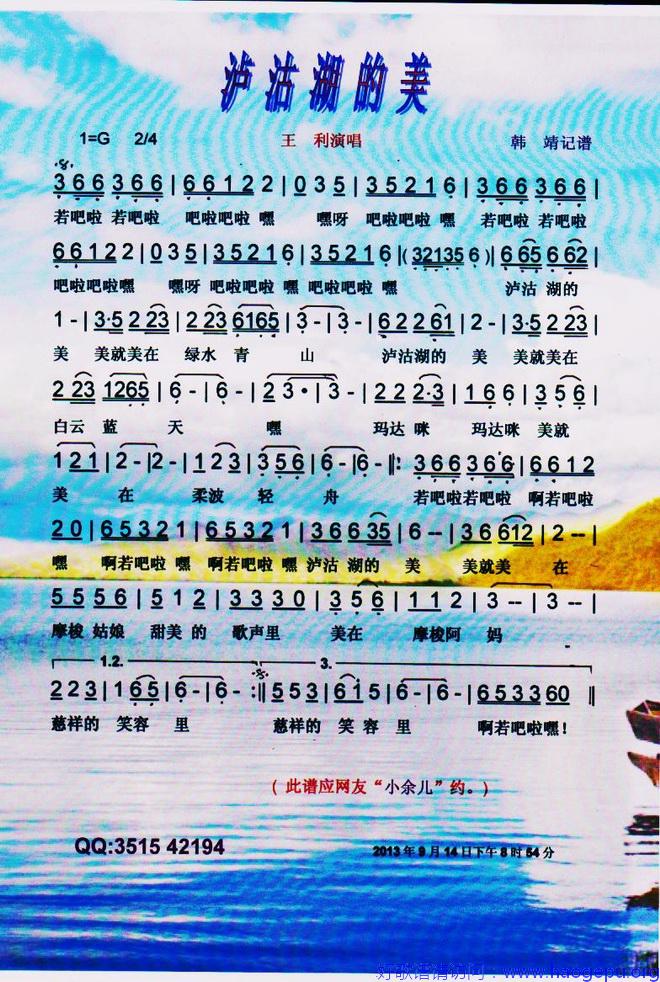 泸沽湖的美
1=G 2/4 王 利演唱 韩 靖记谱
3 6 6 3 6 6 | 6 6 1 2 2 | 0 3 5 | 3 5 2 1 6 | 3 6 6 3 6 6 |
若吧啦 若吧啦 吧啦吧啦 嘿 嘿呀 吧啦吧啦 嘿 若吧啦 若吧啦
6 6 1 2 2 | 0 3 5 | 3 5 2 1 6 | 3 5 2 1 6 |( 3 2 1 3 5 6 )| 6 6 5 6 6 2 |
吧啦吧啦嘿 嘿呀 吧啦吧啦 嘿 吧啦吧啦 嘿 泸沽 湖的
1 - | 3·5 2 2 3 | 2 2 3 6 1 6 5 | 3 - | 3 - | 6 2 2 6 1 | 2 - | 3·5 2 2 3 |
美 美就美在 绿水 青 山 泸沽湖的 美 美就美在
2 2 3 1 2 6 5 | 6 - | 6 - | 2 3 • | 3 - | 2 2 2·3 | 1 6 6 | 3 5 6 |
白云 蓝 天 嘿 玛达 咪 玛达咪 美就
1 2 1 | 2 - | 2 - | 1 2 3 | 3 5 6 | 6 - | 6 - ‖: 3 6 6 3 6 6 | 6 6 1 2
美 在 柔波 轻 舟 若吧啦若吧啦 啊若吧啦
2 0 | 6 5 3 2 1 | 6 5 3 2 1 | 3 6 6 3 5 | 6 - - | 3 6 6 1 2 | 2 - - |
嘿 啊若吧啦 嘿 啊若吧啦 嘿 泸沽 湖的 美 美就美 在
5 5 5 6 | 5 1 2 | 3 3 3 0 | 3 5 6 | 1 1 2 | 3 - - | 3 - - |
摩梭 姑娘 甜美 的 歌声里 美在 摩梭阿 妈
1.2. 3.
2 2 3 | 1 6 5 | 6 - | 6 - :‖ 5 5 3 | 6 1 5 | 6 - | 6 - | 6 5 3 3 6 0 ‖
慈祥的 笑容 里 慈祥的 笑 容 里 啊若吧啦嘿!
( 此谱应网友“小余儿”约。)
QQ:3515 42194 2013年9月14日下午8时54分
好歌谱请访问:www.haogepu.org